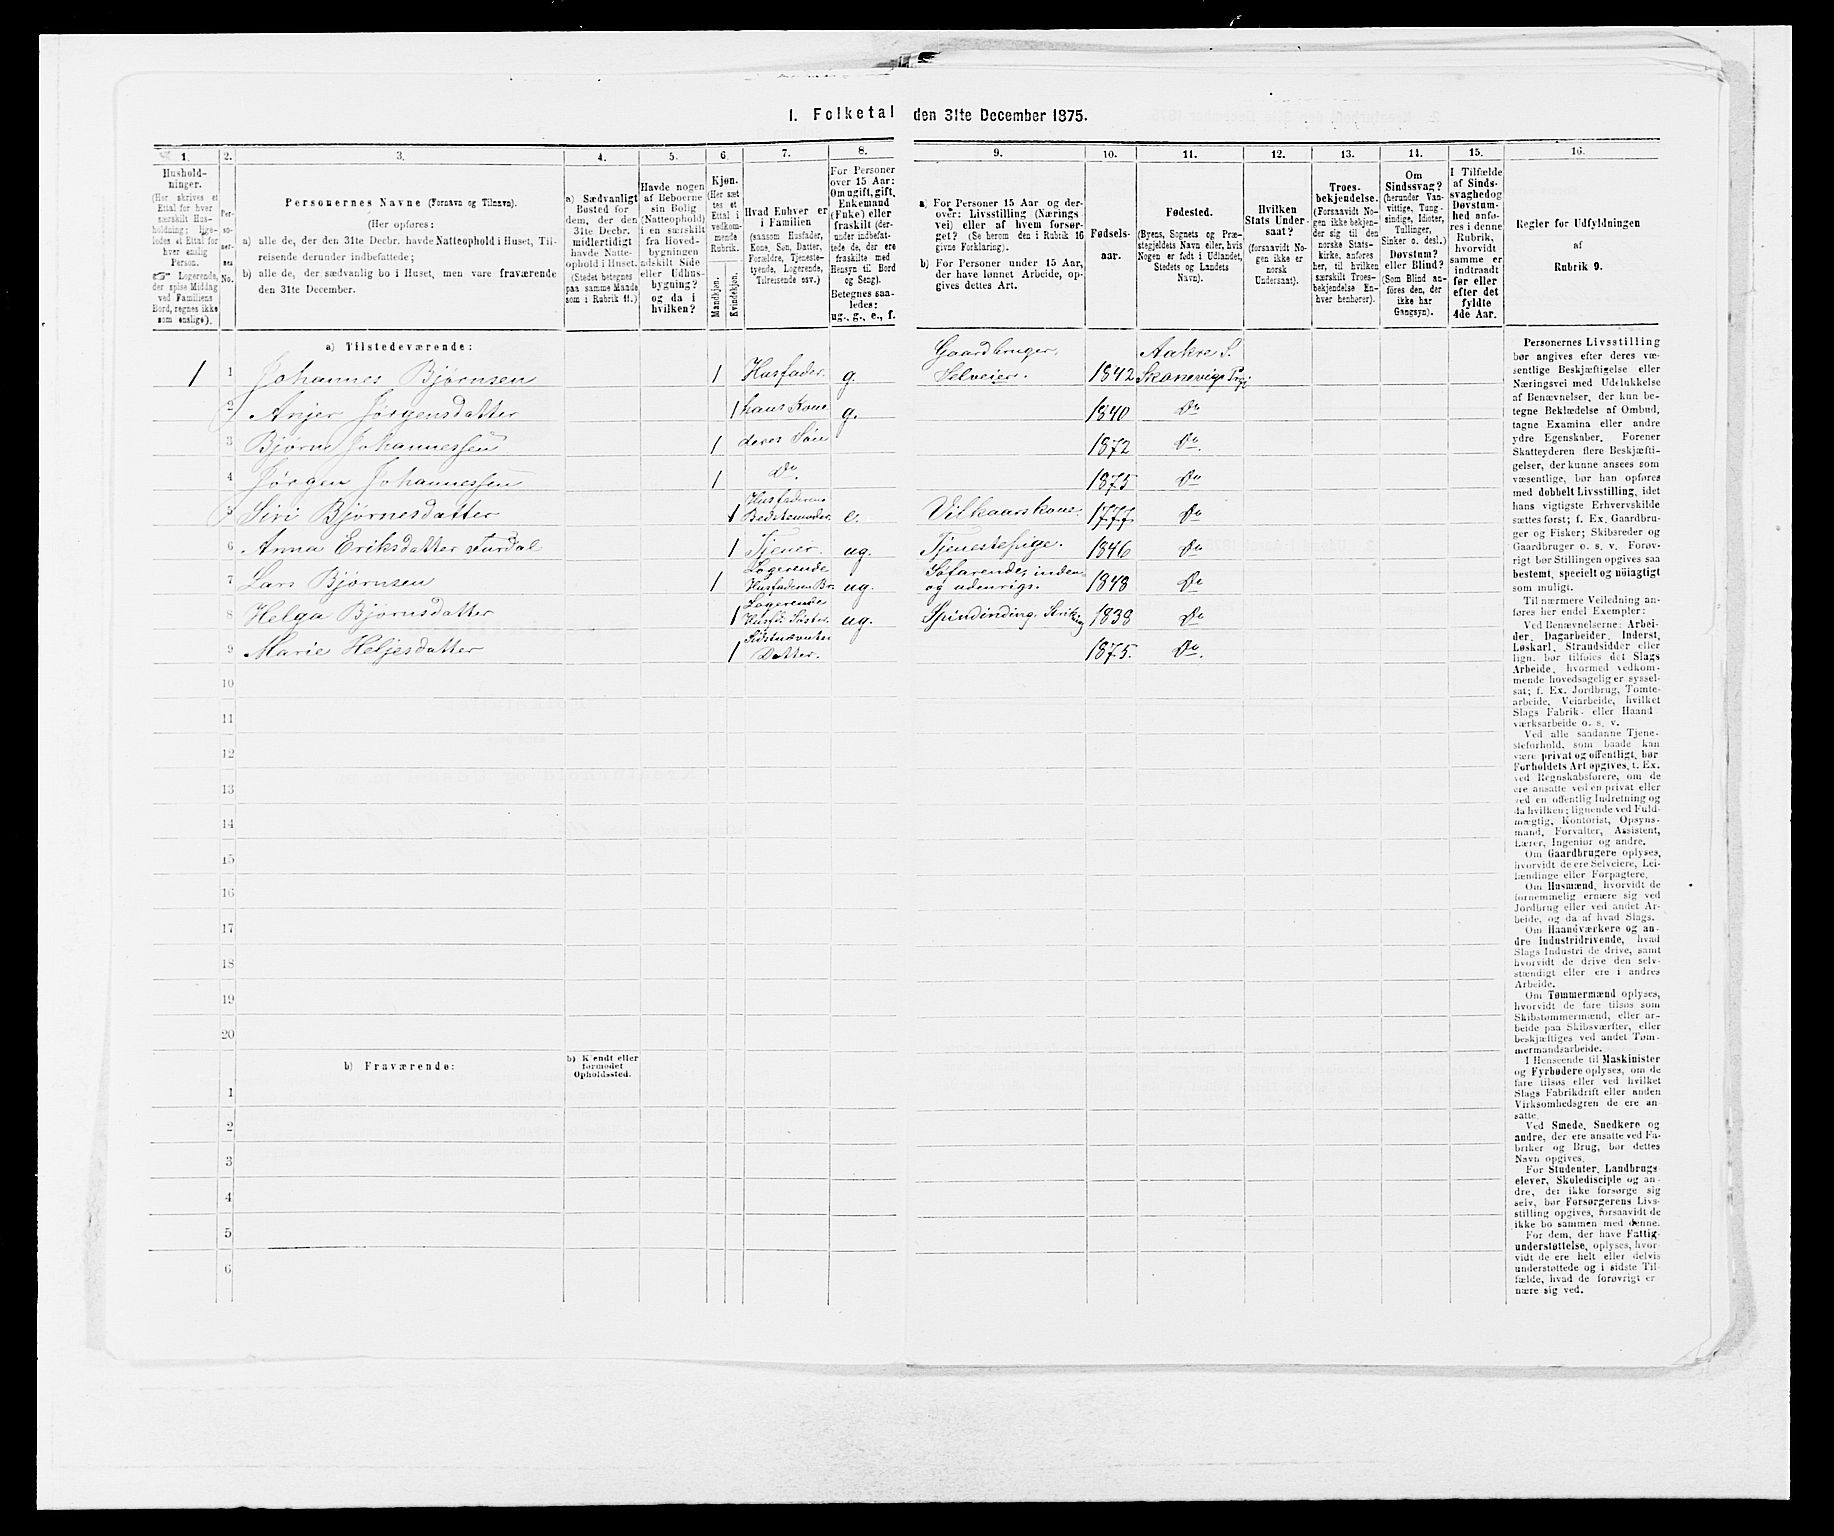 I. Folketal den 31te December 1875.
1. 2. 3. 4. 5. 6. 7. 8. 9. 10. 11. 12. 13. 14. 15. 16.
Hushold-
ninger.
(Her skrives et
Ettal for hver
særskilt Hus-
holdning; lige-
ledes et Ettal for
hver enslig
Person.
☞ Logerende,
der spise Middag
ved Familiens
Bord, regnes ikke
som enslige).
Per-
so-
ner-
nes
No.
Personernes Navne (Fornavn og Tilnavn).
(Her opføres:
a) alle de, der den 31te Decbr. havde Natteophold i Huset, Til-
reisende derunder indbefattede;
b) alle de, der sædvanlig bo i Huset, men vare fraværende
den 31te December.
a) Sædvanligt
Bosted for
dem, der den
31te Decbr.
midlertidigt
havde Natte-
ophold i Huset.
(Stedet betegnes
paa samme Maade
som i Rubrik 11.)
Havde nogen
af Beboerne
sin Bolig
(Natteophold)
i en særskilt
fra Hoved-
bygningen
adskilt Side
eller Udhus-
bygning?
og da i
hvilken?
Kjøn.
(Her sæt-
tes et
Ettal i
vedkom-
mende
Rubrik.
Mandkjøn.
Kvindekjøn.
Hvad Enhver er
i Familien
(saasom Husfader,
Kone, Søn, Datter,
Forældre, Tjeneste-
tyende, Logerende,
Tilreisende osv.)
For Personer
over 15 Aar:
Om ugift, gift,
Enkemand
(Enke) eller
fraskilt (der-
under indbefat-
tede de, der ere
fraskilte med
Hensyn til Bord
og Seng).
Betegnes saa-
ledes:
ug., g., e., f.
a) For Personer 15 Aar og der-
over: Livsstilling (Nærings-
vei) eller af hvem forsør-
get? (Se herom den i Rubrik 16
givne Forklaring).
b) For Personer under 15 Aar,
der have lønnet Arbeide, op-
gives dettes Art.
Fødsels-
aar.
Fødested.
(Byens, Sognets og Præ-
stegjeldets Navn eller, hvis
Nogen er født i Udlandet,
Stedets og Landets
Navn).
Hvilken
Stats Under-
saat?
(forsaavidt No-
gen ikke er
norsk
Undersaat).
Troes-
bekjendelse.
(Forsaavidt No-
gen ikke bekjen-
der sig til den
norske Stats-
kirke, anføres
her, til hvilken
særskilt Troes-
bekjendelse En-
hver henhører).
Om
Sindssvag?
(herunder Van-
vittige, Tung-
sindige, Idioter,
Tullinger,
Sinker o. desl.)
Døvstum?
eller Blind?
(Som Blind an-
føres den, der
ikke har
Gangsyn).
I Tilfælde
af Sinds-
svaghed og
Døvstum-
hed anfø-
res i denne
Rubrik,
hvorvidt
samme er
indtraadt
før eller
efter det
fyldte
4de Aar.
Regler for Udfyldningen
af
Rubrik 9.
a) Tilstedeværende:
1 1 Johannes Bjørnsen 1 Husfader. g. Gaardbruger. Selveier. 1842 Aakre S. Skonevigs
2 Anjer Jørgensdatter 1 hans Kone g. 1840 Do
3 Bjørn Johannessen 1 deres Søn 1872 Do.
4 Jørgen Johannessen 1 Do 1875 Do
5 Siri Bjørnesdatter 1 Husfaderens Bedstemoder e. Vilkaarskone 1777 Do
6 Anna Eriksdatter 1 Tjener. ug. Tjenestepige. 1846 Do
7 Lars Bjørnsen 1 Logerende Husfaderen Br. ug. Søfarende, inden- og udenrigs. 1848 Do
8 Helga Bjørnsdatter 1 Logerende Husf: Søster. ug. 1838 Do
9 Marie Heljesdatter 1 Sidstnævntes Datter. 1875. Do.
10
11
12
13
14
15
16
17
18
19
20
b) Fraværende:
b) Kjendt eller
formodet
Opholdssted.
1
2
3
4
5
6
Personernes Livsstilling
bør angives efter deres væ-
sentlige Beskjæftigelse eller
Næringsvei med Udelukkelse
af Benævnelser, der kun be-
tegne Beklædelse af Ombud,
tagne Examina eller andre
ydre Egenskaber. Forener
Skatteyderen flere Beskjæfti-
gelser, der kunne ansees som
væsentlige, bør han opføres
med dobbelt Livsstilling, idet
hans vigtigste Erhvervskilde
sættes først; f. Ex. Gaardbru-
ger og Fisker; Skibsreder og
Gaardbruger o. s. v. Forøv-
rigt bør Stillingen opgives saa
bestemt, specielt og nøiagtigt
som muligt.
Til nærmere Veiledning an-
føres her endel Exempler:
Ved Benævnelserne: Arbei-
der, Dagarbeider, Inderst,
Løskarl, Strandsidder eller
lign. bør tilføies det Slags
Arbeide, hvormed vedkom-
mende hovedsagelig er syssel-
sat; f. Ex. Jordbrug, Tomte-
arbeide, Veiarbeide, hvilket
Slags Fabrik- eller Haand-
værksarbeide o. s. v.
Ved alle saadanne Tjene-
steforhold, som baade kan
være privat og offentligt, bør
Forholdets Art opgives, f. Ex.
ved Regnskabsførere, om de
ere ansatte ved en privat eller
ved en offentlig Indretning og
da hvilken; lignende ved Fuld-
mægtig, Kontorist, Opsyns-
mand, Forvalter, Assistent,
Lærer, Ingeniør og andre.
Om Gaardbrugere oplyses,
hvorvidt de ere Selveiere, Lei-
lændinge eller Forpagtere.
Om Husmænd, hvorvidt de
fornemmelig ernære sig ved
Jordbrug eller ved andet Ar-
beide, og da af hvad Slags.
Om Haandværkere og an-
dre Industridrivende, hvad
Slags Industri de drive, samt
hvorvidt de drive den selv-
stændigt eller ere i andres
Arbeide.
Om Tømmermænd oplyses,
hvorvidt de fare tilsøs som
Skibstømmermænd, eller ar-
beide paa Skibsværfter, eller
beskjæftiges ved andet Tøm-
mermandsarbeide.
I Henseende til Maskinister
og Fyrbødere oplyses, om de
fare tilsøs eller ved hvilket
Slags Fabrikdrift eller anden
Virksomhedsgren de ere an-
satte.
Ved Smede, Snedkere og
andre, der ere ansatte ved Fa-
briker og Brug, bør dettes
Navn opgives.
For Studenter, Landbrugs-
elever, Skoledisciple og an-
dre, der ikke forsørge sig
selv, bør Forsørgerens Livs-
stilling opgives, forsaavidt de
ikke bo sammen med denne.
For dem, der have Fattig-
understøttelse, oplyses, hvor-
vidt de ere helt eller delvis
understøttede og i sidste Til-
fælde, hvad de forøvrigt er-
nære sig ved.